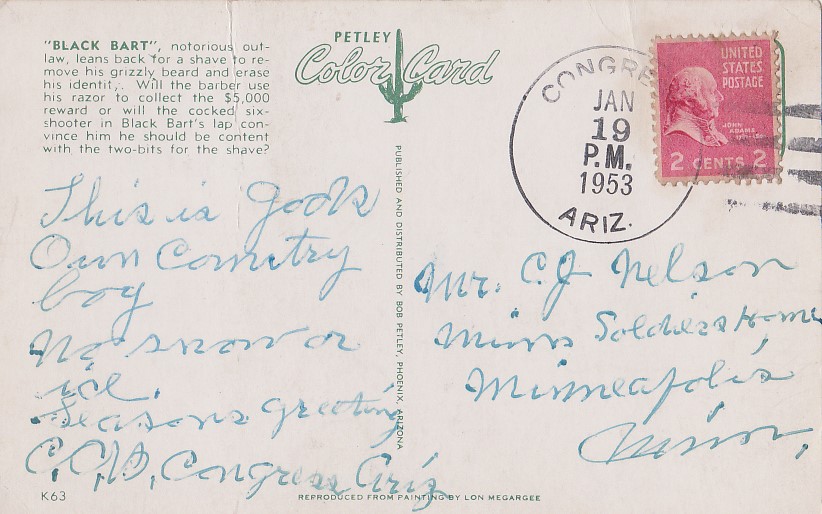 "BLACK BART", notorious out-
law, leans back for a shave to re-
move his grizzly beard and erase
his identity. Will the barber use
his razor to collect the $5,000
reward or will the cocked six-
shooter in Black Bart's lap con-
vince him he should be content
with the two-bits for the shave?
PETLEY
Color Card
CONGRE
JAN
19
P.M.
1953
ARIZ.
UNITED
STATES
POSTAGE
JOHN
ADAMS
2 CENTS 2
This is Gods
Own Comitry
boy
No snow or
ice.
Seasons greeting
Congress Ariz
PUBLISHED AND DISTRIBUTED BY BOB PETLEY, PHOENIX, ARIZONA
Mr. C.J. Nelson
Minn Soldiers Home
Minneapolis
Minn,
K63
REPRODUCED FROM PAINTING BY LON MEGARGEE